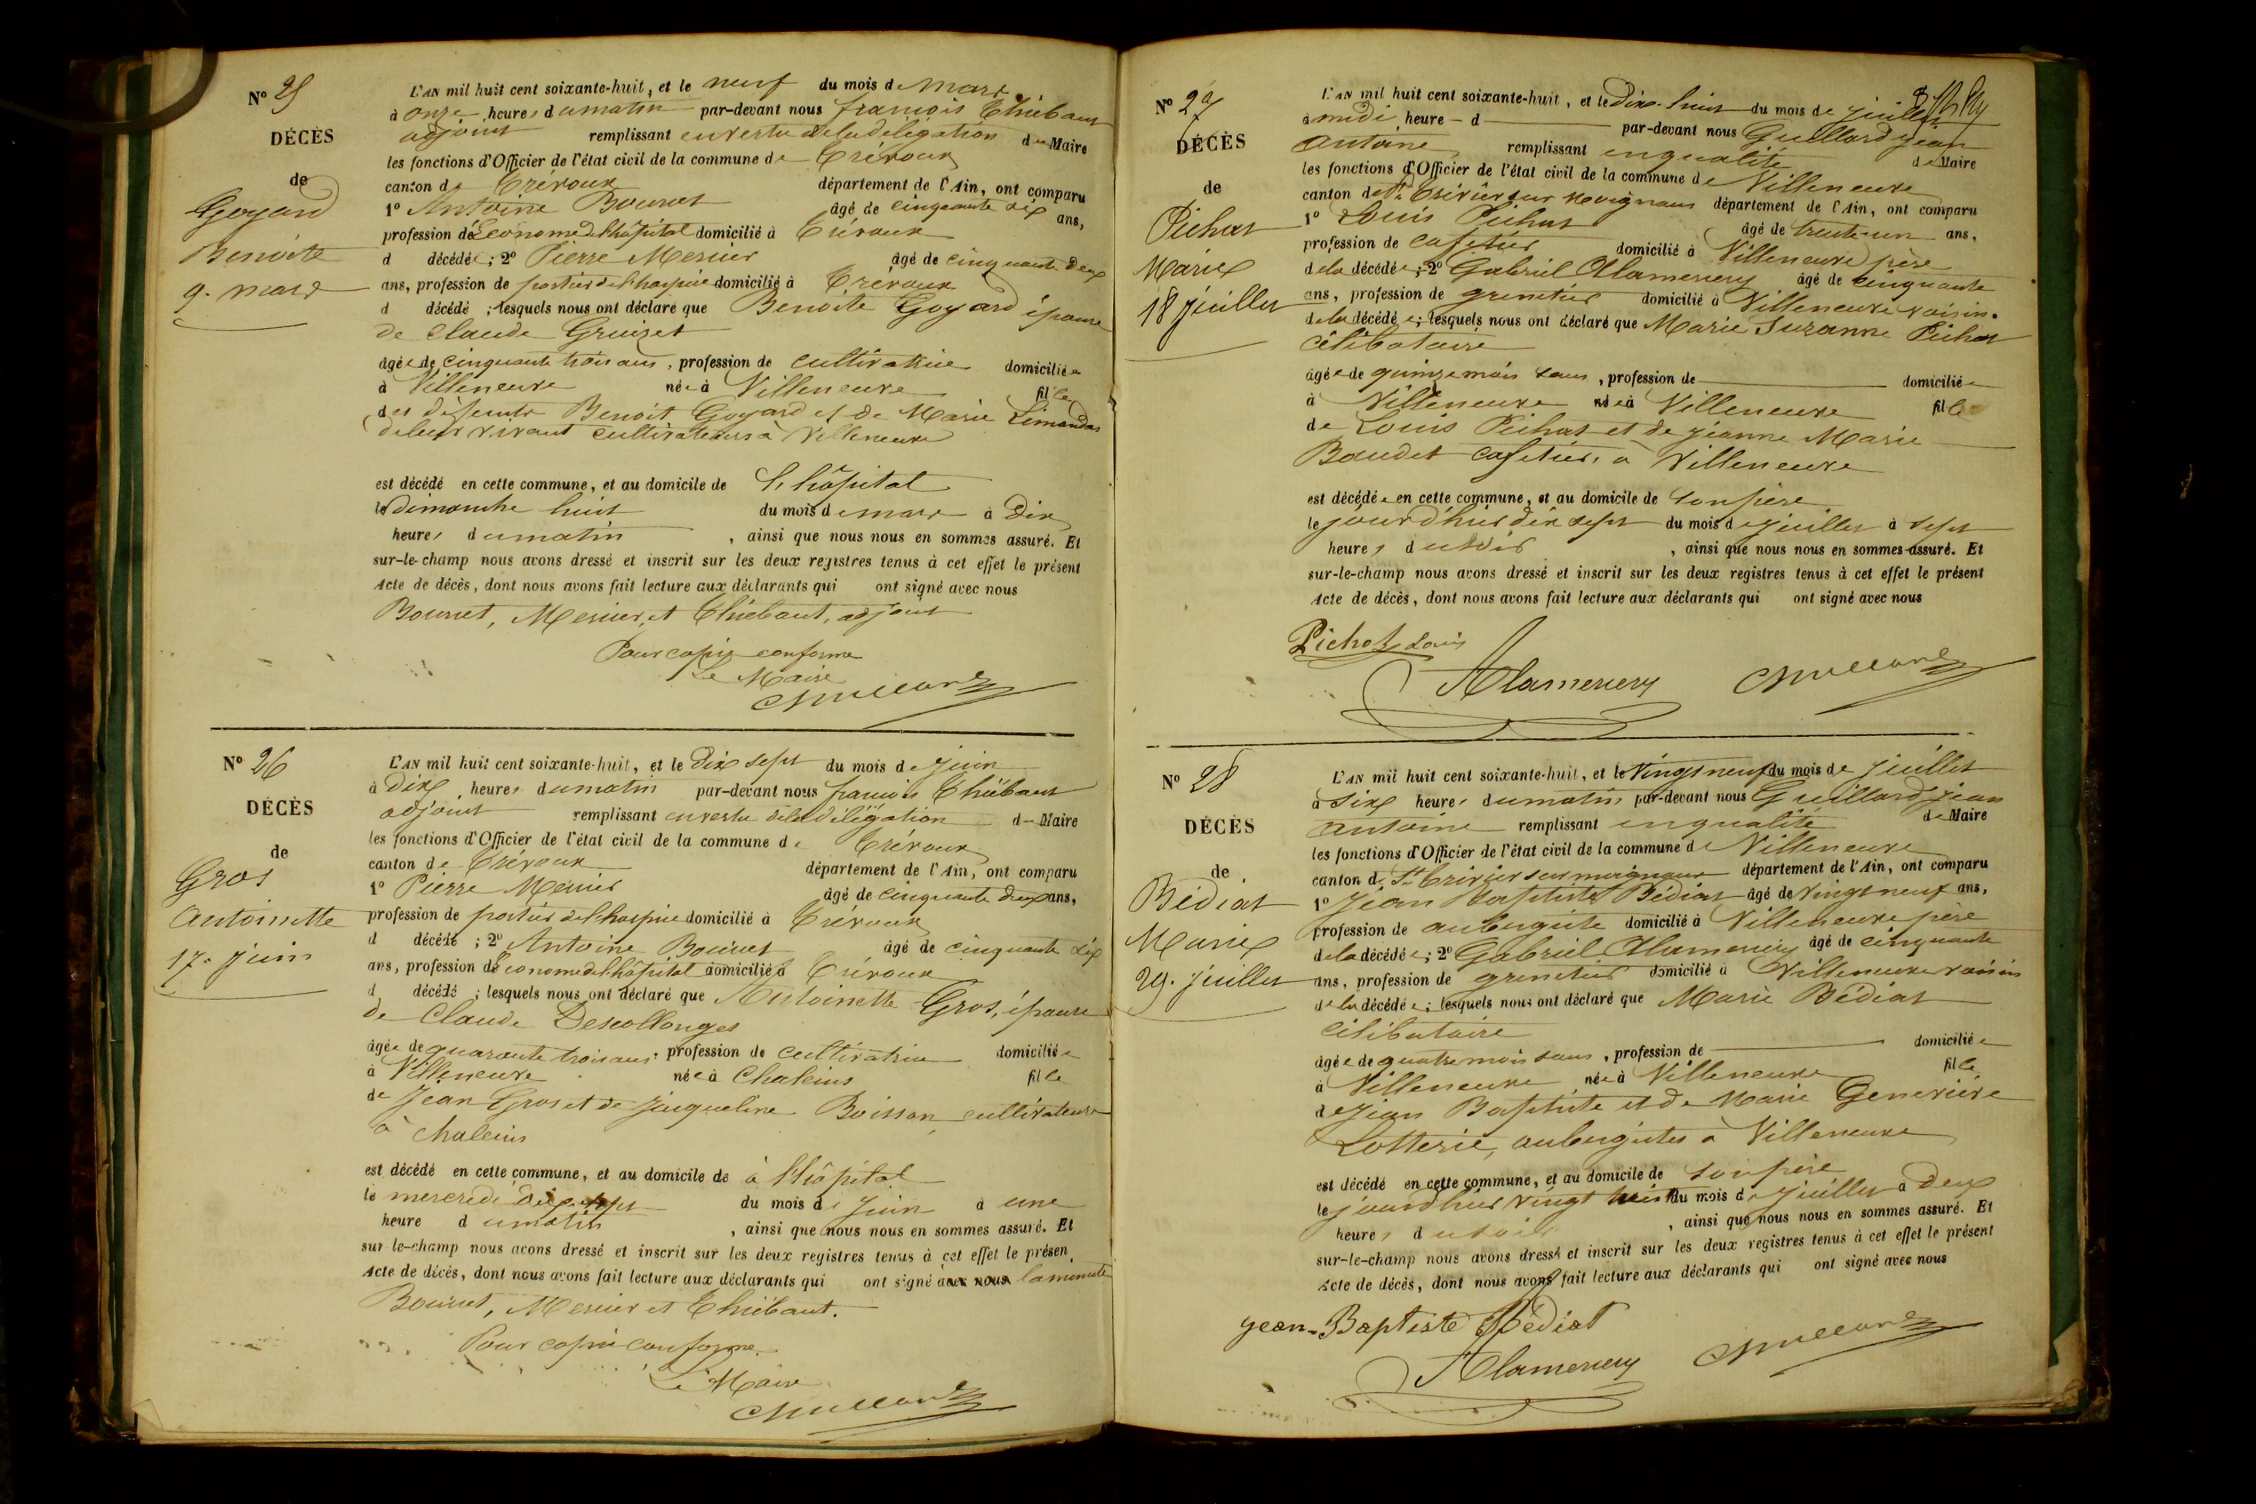 Nº 25
DÉCÈS
de
Goyard
Benoite
9. mars
L'AN mil huit cent soixante-huit, et le neuf du mois de mars
à onze heures du matin par-devant nous françois Thiébaut
adjoint remplissant en vertu de la délégation du Maire
les fonctions d'Officier de l'état civil de la commune de Trévoux
canton de Trévoux département de l'Ain, ont comparu
1º Antoine Bouvet âgé de cinquante six ans,
profession de Econome de l'hôpital domicilié à Trévoux
d décédé ; 2º Pierre Mercier âgé de cinquante deux
ans, profession de portier de l'hospice domicilié à Trévoux
d décédé ; lesquels nous ont déclaré que Benoite Goyard épouse
de Claude Gruizet
âgée de cinquante trois ans, profession de cultivatrice domiciliée
à Villeneuve née à Villeneuve fille
des défunts Benoit Goyard et de Marie Limandas
de leur vivant cultivateurs à Villeneuve
est décédé en cette commune, et au domicile de L'hôpital
le dimanche huit du mois de mars à Dix
heures du matin, ainsi que nous nous en sommes assuré. Et
sur-le-champ nous avons dressé et inscrit sur les deux registres tenus à cet effet le présent
Acte de décès, dont nous avons fait lecture aux déclarants qui ont signé avec nous
Bouvet, Mercier, et Thiébaut, adjoint
Pour copie conforme
Le Maire
Nº 26
DÉCÈS
de
Gros
Antoinette
17. Juin
L'AN mil huit cent soixante-huit, et le Dix sept du mois de Juin
à Dix heures du matin par-devant nous françois Thiébaut
adjoint remplissant en vertu de la délégation du Maire
les fonctions d'Officier de l'état civil de la commune de Trévoux
canton de Trévoux département de l'Ain, ont comparu
1º Pierre Mercier âgé de cinquante deux ans,
profession de portier de l'hospice domicilié à Trévoux
d décédé ; 2º Antoine Bouvet âgé de cinquante six
ans, profession de Econome de l'hôpital domicilié à Trévoux
d décédé ; lesquels nous ont déclaré que Antoinette Gros, épouse
de Claude Descollonges
âgée de quarante trois ans, profession de cultivatrice domiciliée
à Villeneuve née à Chaleins fille
de Jean Gros et de Jacqueline Buisson, cultivateurs
à Chaleins
est décédé en cette commune, et au domicile de à l'hôpital
le mercredi Dix sept du mois de Juin à une
heure du matin, ainsi que nous nous en sommes assuré. Et
sur-le-champ nous avons dressé et inscrit sur les deux registres tenus à cet effet le présent
Acte de décès, dont nous avons fait lecture aux déclarants qui ont signé avec nous la minute
Bouvet, Mercier et Thiébaut.
Pour copie conforme
Le Maire
Nº 27
DÉCÈS
de
Pichat
Marie
18 juillet
L'AN mil huit cent soixante-huit, et le Dix-huit du mois de juillet
à midi heure d par-devant nous Guillard Jean
Antoine remplissant en qualité de Maire
les fonctions d'Officier de l'état civil de la commune de Villeneuve
canton de St Trivier sur moignans département de l'Ain, ont comparu
1º Louis Pichat âgé de trente-un ans,
profession de cafetier domicilié à Villeneuve père
de la décédée ; 2º Gabriel Alamercery âgé de cinquante
ans, profession de grenetier domicilié à Villeneuve voisin
de la décédée ; lesquels nous ont déclaré que Marie Suzanne Pichat
célibataire
âgée de quinze mois sans, profession de domiciliée
à Villeneuve née à Villeneuve fille
de Louis Pichat et de jeanne Marie
Baudet cafetiers à Villeneuve
est décédée en cette commune, et au domicile de son père
le jourd'hier dix sept du mois de juillet à sept
heures du soir, ainsi que nous nous en sommes assuré. Et
sur-le-champ nous avons dressé et inscrit sur les deux registres tenus à cet effet le présent
Acte de décès, dont nous avons fait lecture aux déclarants qui ont signé avec nous
Pichat Louis
Alamercery
Nº 28
DÉCÈS
de
Bédiat
Marie
29. juillet
L'AN mil huit cent soixante-huit, et le Vingt neuf du mois de juillet
à six heures du matin par-devant nous Guillard Jean
Antoine remplissant en qualité de Maire
les fonctions d'Officier de l'état civil de la commune de Villeneuve
canton de St Trivier sur moignans département de l'Ain, ont comparu
1º Jean Baptiste Bédiat âgé de Vingt neuf ans,
profession de aubergiste domicilié à Villeneuve père
de la décédée ; 2º Gabriel Alamercery âgé de cinquante
ans, profession de grenetier domicilié à Villeneuve voisin
de la décédée ; lesquels nous ont déclaré que Marie Bédiat
célibataire
âgée de quatre mois sans, profession de domiciliée
à Villeneuve née à Villeneuve fille
de Jean Baptiste et de Marie Genevieve
Lotterie, aubergistes à Villeneuve
est décédé en cette commune, et au domicile de son père
le jourd'hier vingt huit du mois de juillet à deux
heures du soir, ainsi que nous nous en sommes assuré. Et
sur-le-champ nous avons dressé et inscrit sur les deux registres tenus à cet effet le présent
Acte de décès, dont nous avons fait lecture aux déclarants qui ont signé avec nous
jean-Baptiste Bédiat
Alamercery